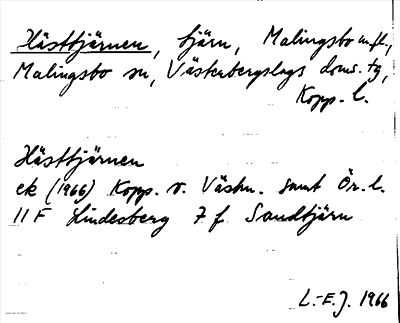 Hästtjärnen, tjärn, Malingsbo m.fl.,
Malingsbo sn, Västerbergslags doms. tg,
Kopp. l.
Hästtjärnen
ek (1966) Kopp. o. Västm. samt Ör. l.
11F Lindesberg 7f Sandtjärn
L.-E.J. 1966